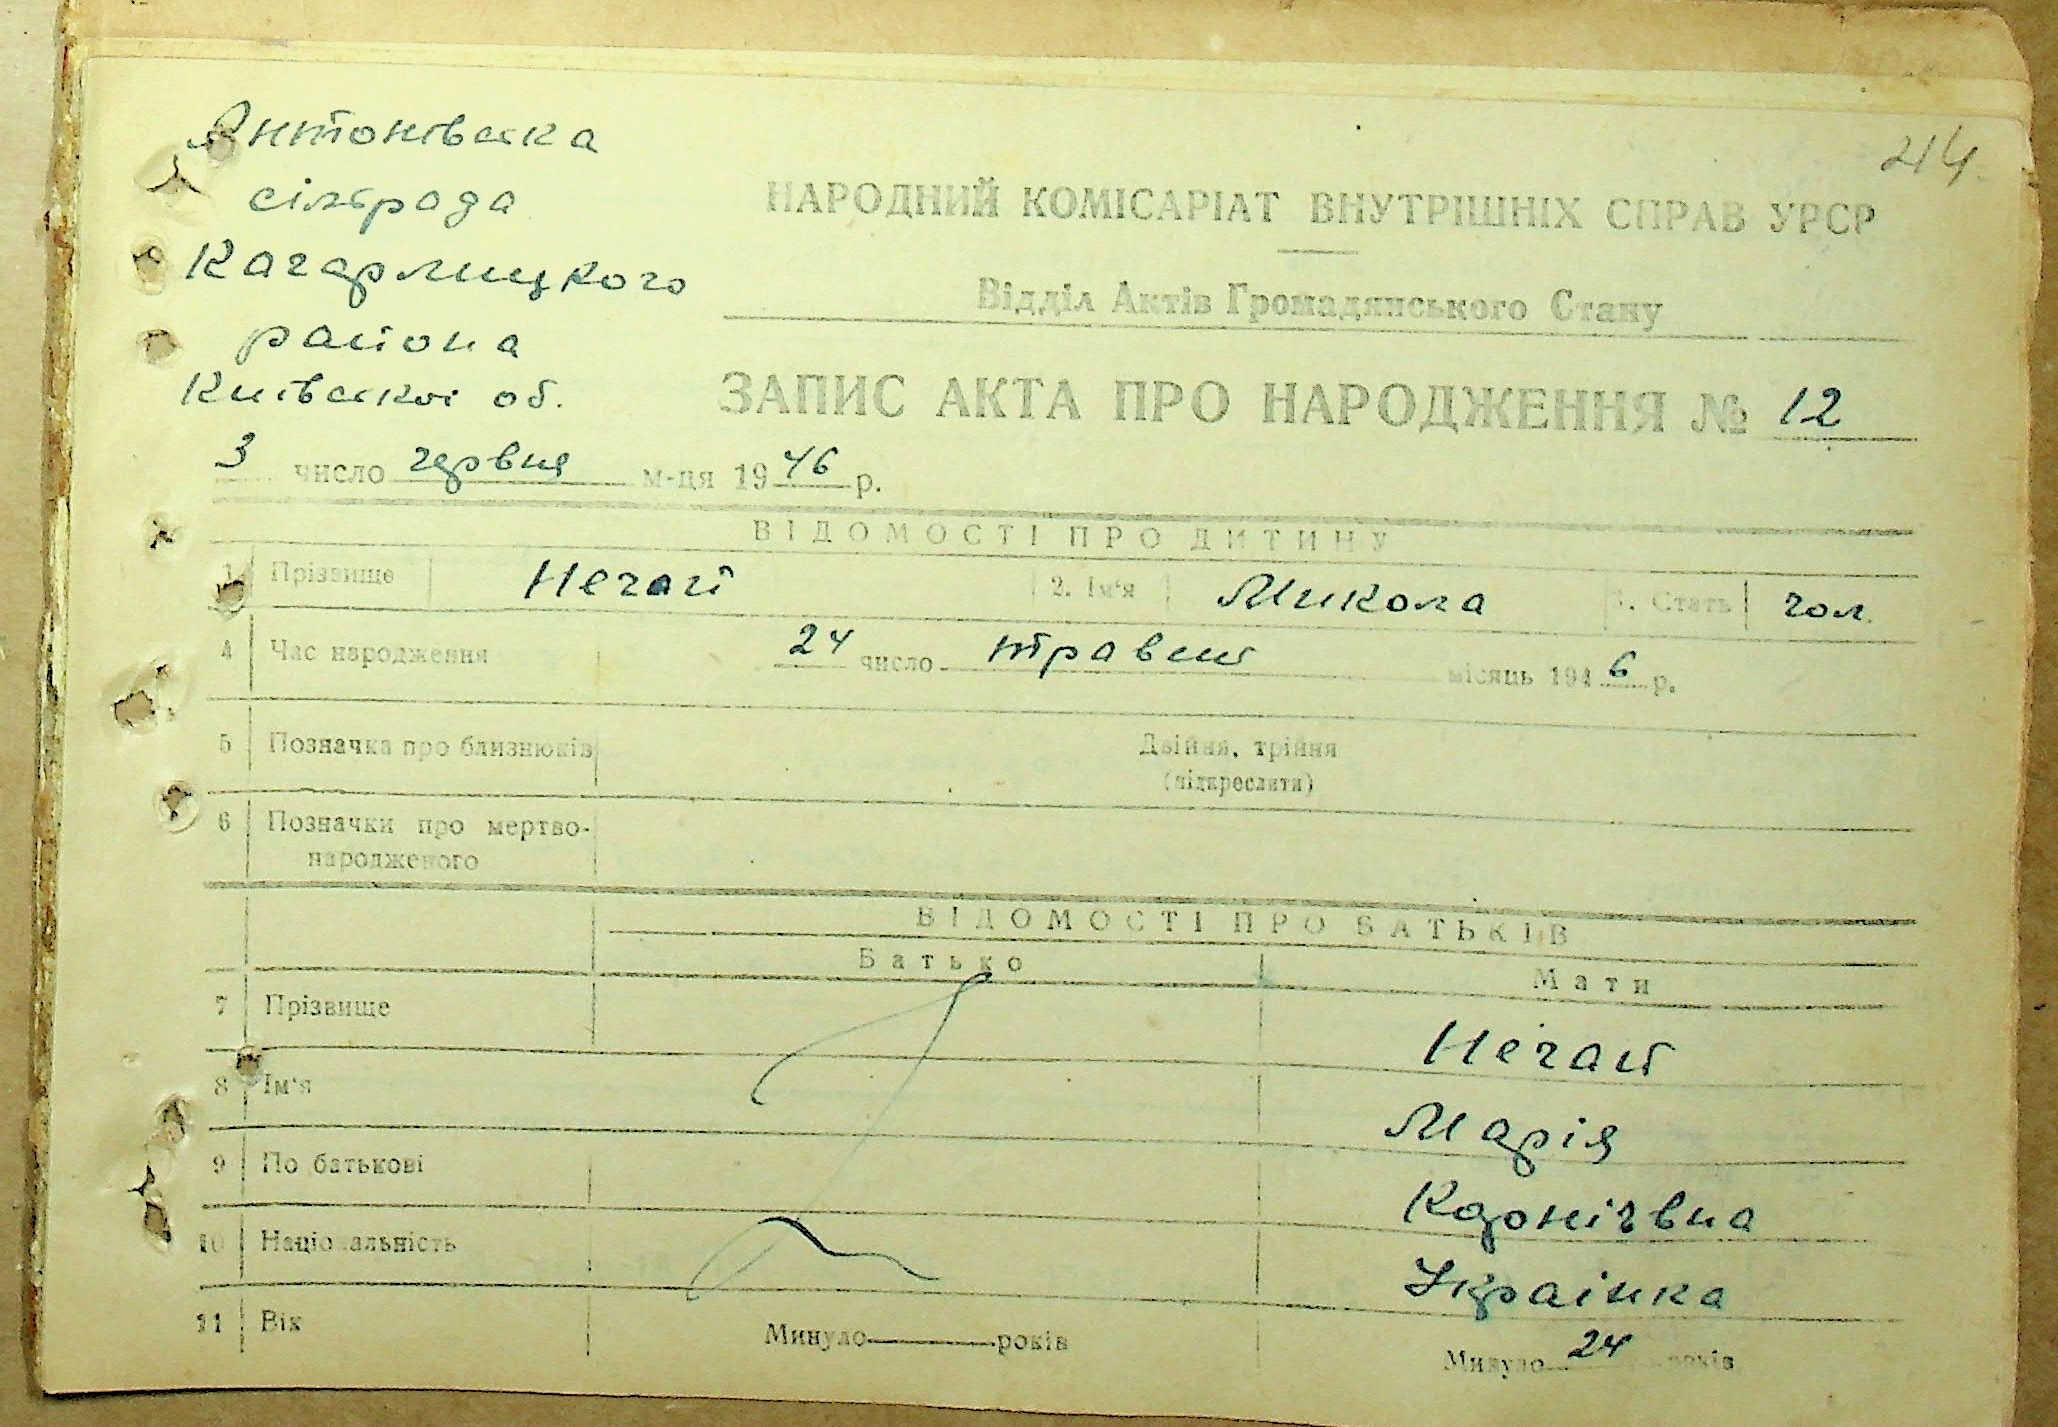 Антонівська
сільрада
Кагарлицького
району
Київської об.
44
НАРОДНИЙ КОМІСАРІАТ ВНУТРІШНІХ СПРАВ УРСР
Відділ Актів Громадянського Стану
ЗАПИС АКТА ПРО НАРОДЖЕННЯ № 12
3 число червня м-ця 1946 р.
ВІДОМОСТІ ПРО ДИТИНУ
1 Прізвище Нечай 2. Ім'я Микола 3. Стать чол.
4 Час народження 24 число травня місяць 1946 р.
5 Позначка про близнюків Двійня, трійня
(підкреслити)
6 Позначки про мертво-
народженого
ВІДОМОСТІ ПРО БАТЬКІВ
Батько Мати
7 Прізвище Нечай
8 Ім'я Марія
9 По батькові
10 Національність Українка
11 Вік Минуло років Минуло 24 років